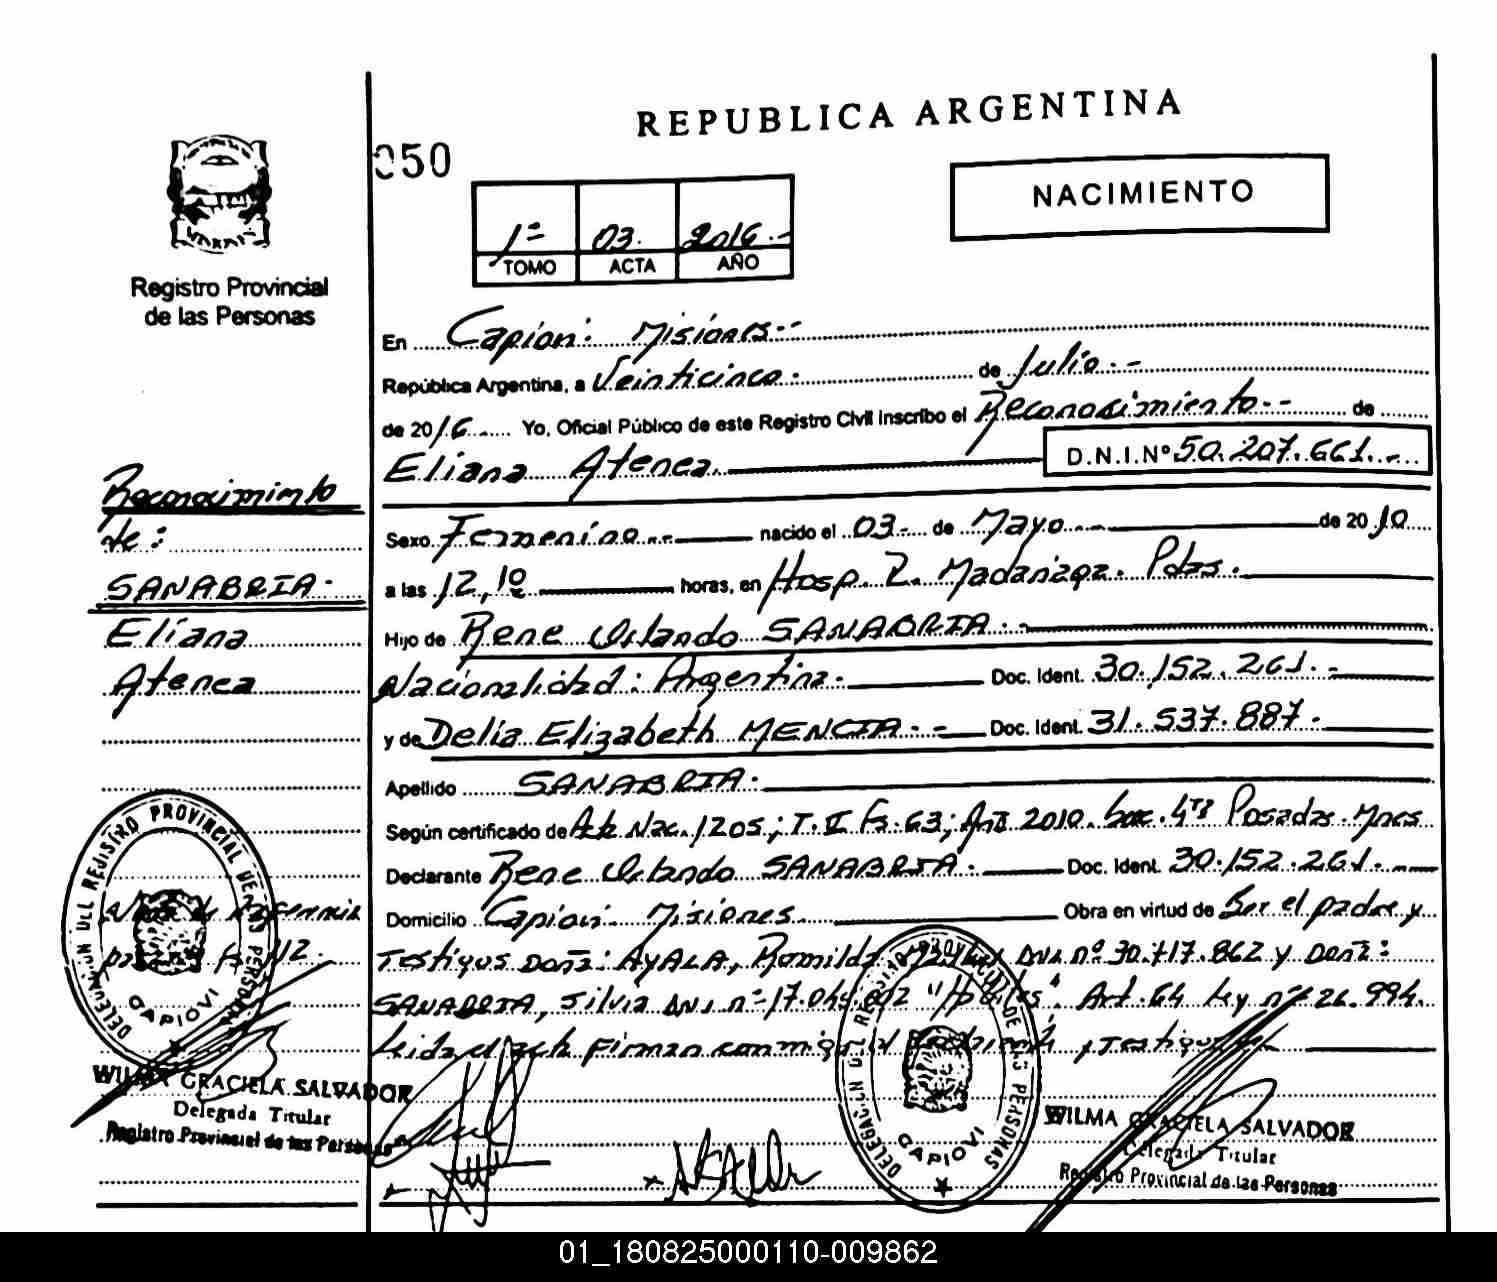 REPUBLICA ARGENTINA
050
NACIMIENTO
1º 03. 2016.-
TOMO ACTA AÑO
Registro Provincial
de las Personas
En Capioví: Misiones.-
República Argentina, a Veinticinco. de Julio.-
de 2016 Yo, Oficial Público de este Registro Civil inscribo el Reconocimiento.- de
Eliana Atenea. D.N.I.Nº 50.207.661.-
Reconocimiento
de:
SANABRIA.
Eliana
Atenea
Sexo Femenino.- nacido el 03.- de Mayo.- de 2010
a las 12,10 horas, en Hosp. R. Madariaga. Pdas.
Hijo de Rene Orlando SANABRIA.-
Nacionalidad: Argentina. Doc. Ident. 30.152.261.-
y de Delia Elizabeth MENCIA.- Doc. Ident. 31.537.887.
Apellido SANABRIA.
Según certificado de Acta Nac. 1205; T. II Fs. 63; Año 2010. Secc. 4ta Posadas Mnes
Declarante Rene Orlando SANABRIA. Doc. Ident. 30.152.261.
Domicilio Capioví. Misiones. Obra en virtud de Ser el padre y
Testigos Doña: AYALA, Romilda DNI nº 30.717.862 y Doña:
SANABRIA, Silvia DNI nº 17. Art. 64 Ley nº 26.994.
Leida el acta Firman conmigo y Testigos
DELEGACION DEL REGISTRO PROVINCIAL DE LAS PERSONAS
CAPIOVI
WILMA GRACIELA SALVADOR
Delegada Titular
Registro Provincial de las Personas
DELEGACION DEL REGISTRO PROVINCIAL DE LAS PERSONAS
CAPIOVI
WILMA GRACIELA SALVADOR
Delegada Titular
Registro Provincial de las Personas
01_180825000110-009862